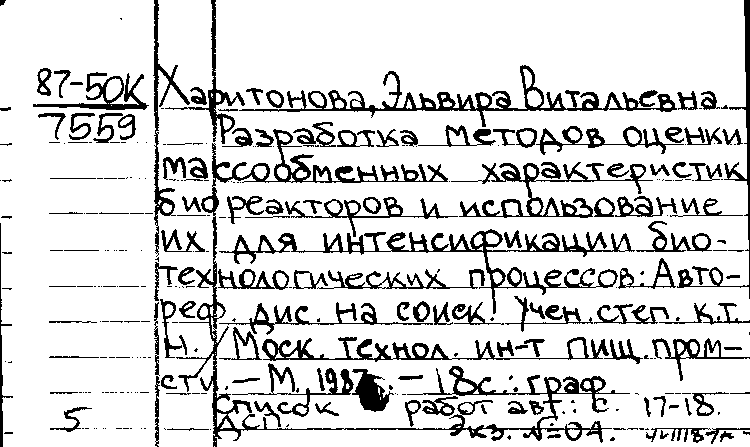 87-50К
7559
Харитонова, Эльвира Витальевна
Разработка методов оценки
массообменных характеристик
биореакторов и использование
их для интенсификации био-
технологических процессов: Авто-
реф. дис. на соиск. учен. степ. к.т.
н. / Моск. технол. ин-т пищ. пром-
сти. – М., 1987. – 18 с.: граф.
Список работ авт.: с. 17-18.
5 ДСП. Экз. №04.